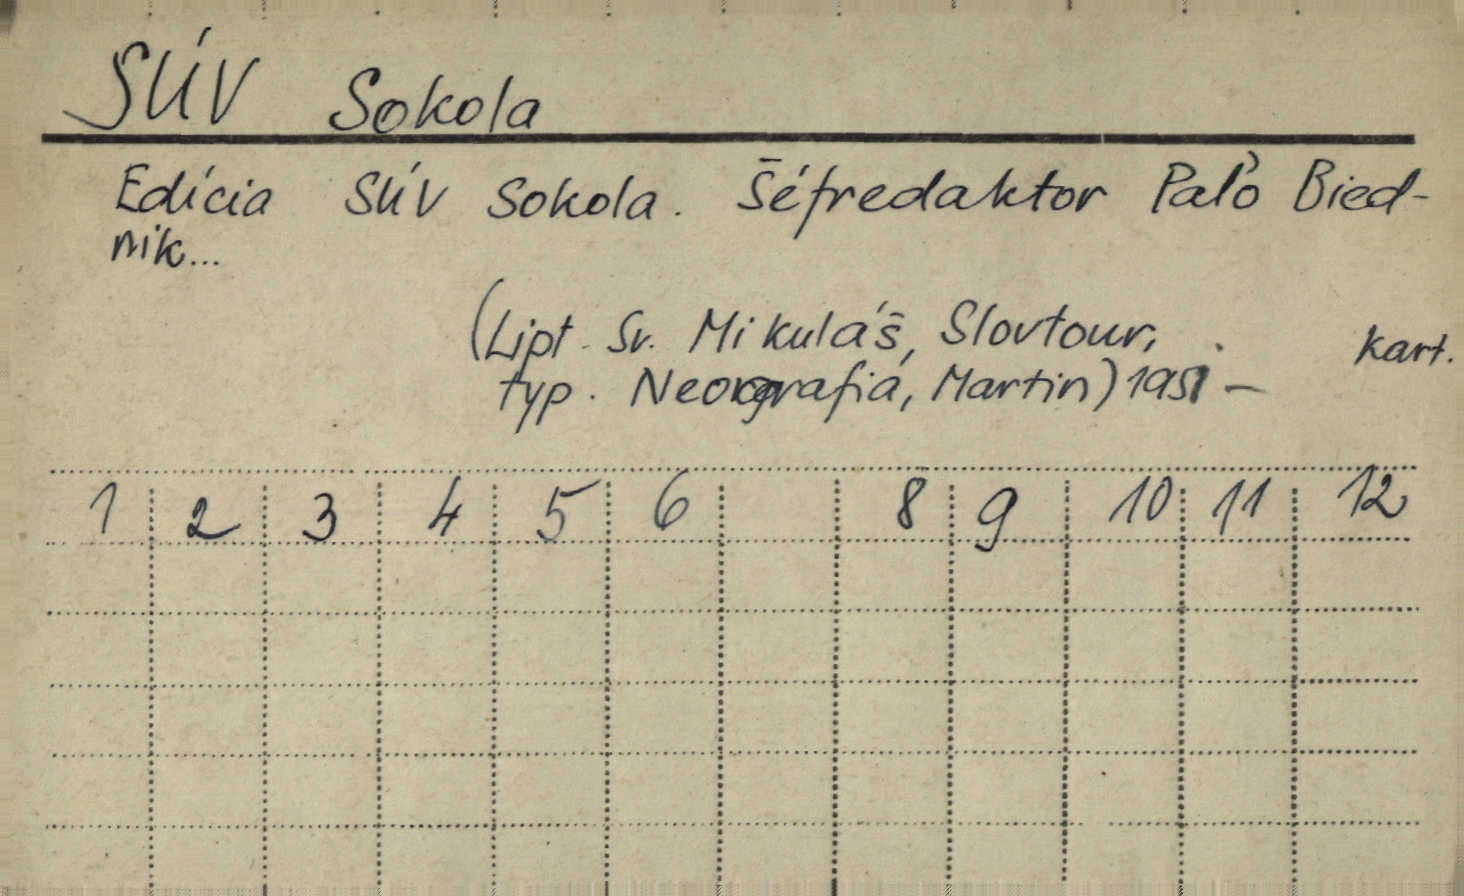 SÚV Sokola
Edícia SÚV Sokola. Šéfredaktor Paľo Bied-
nik...
(Lipt. Sv. Mikuláš, Slovtour, kart.
typ. Neografia, Martin) 1951 –
1 2 3 4 5 6 8 9 10 11 12